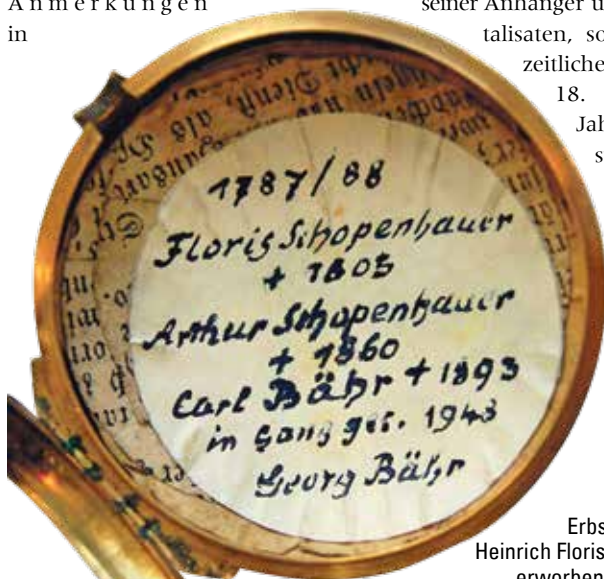 Anmerkungen
in
seiner Anhänger u
talisaten, so
zeitliche
18.
Jah
s
1787/88
Floris Schopenhauer
+ 1805
Arthur Schopenhauer
+ 1860
Carl Bähr + 1893
in Gang ges. 1943
Georg Bähr
Dienst, als
Erbs
Heinrich Floris
erworben